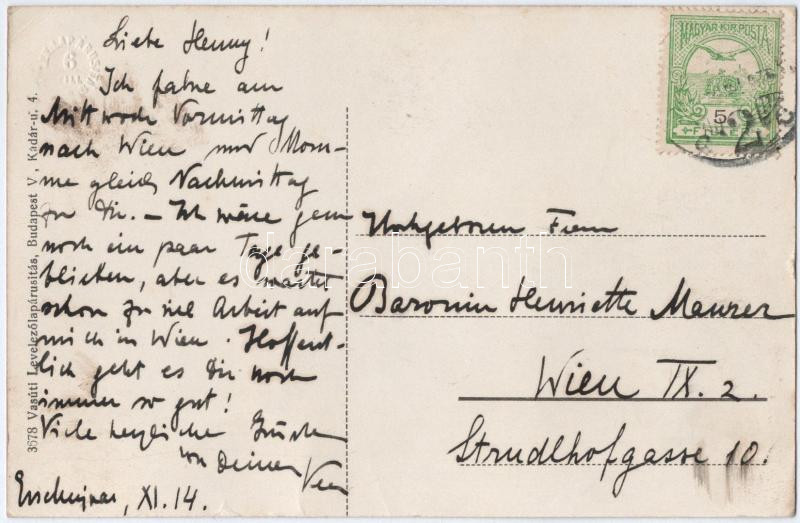 Liebe Henny!
Ich fahre am
Mittwoch Vormittag
nach Wien und kom-
me gleich Nachmittag
zu Dir. – Ich wäre gern
noch ein paar Tage ge-
blieben, aber es wartet
schon zu viel Arbeit auf
mich in Wien. Hoffent-
lich geht es Dir noch
immer so gut!
Viele herzliche Grüße
von Deinem
XI.14.
MAGYAR KIR. POSTA
5
Hochgeboren Frau
Baronin Henriette Maurer
Wien IX. 2.
Strudlhofgasse 10.
3678 Vasúti Levelezőlapárusítás, Budapest V., Kádár-u. 4.
darabanth